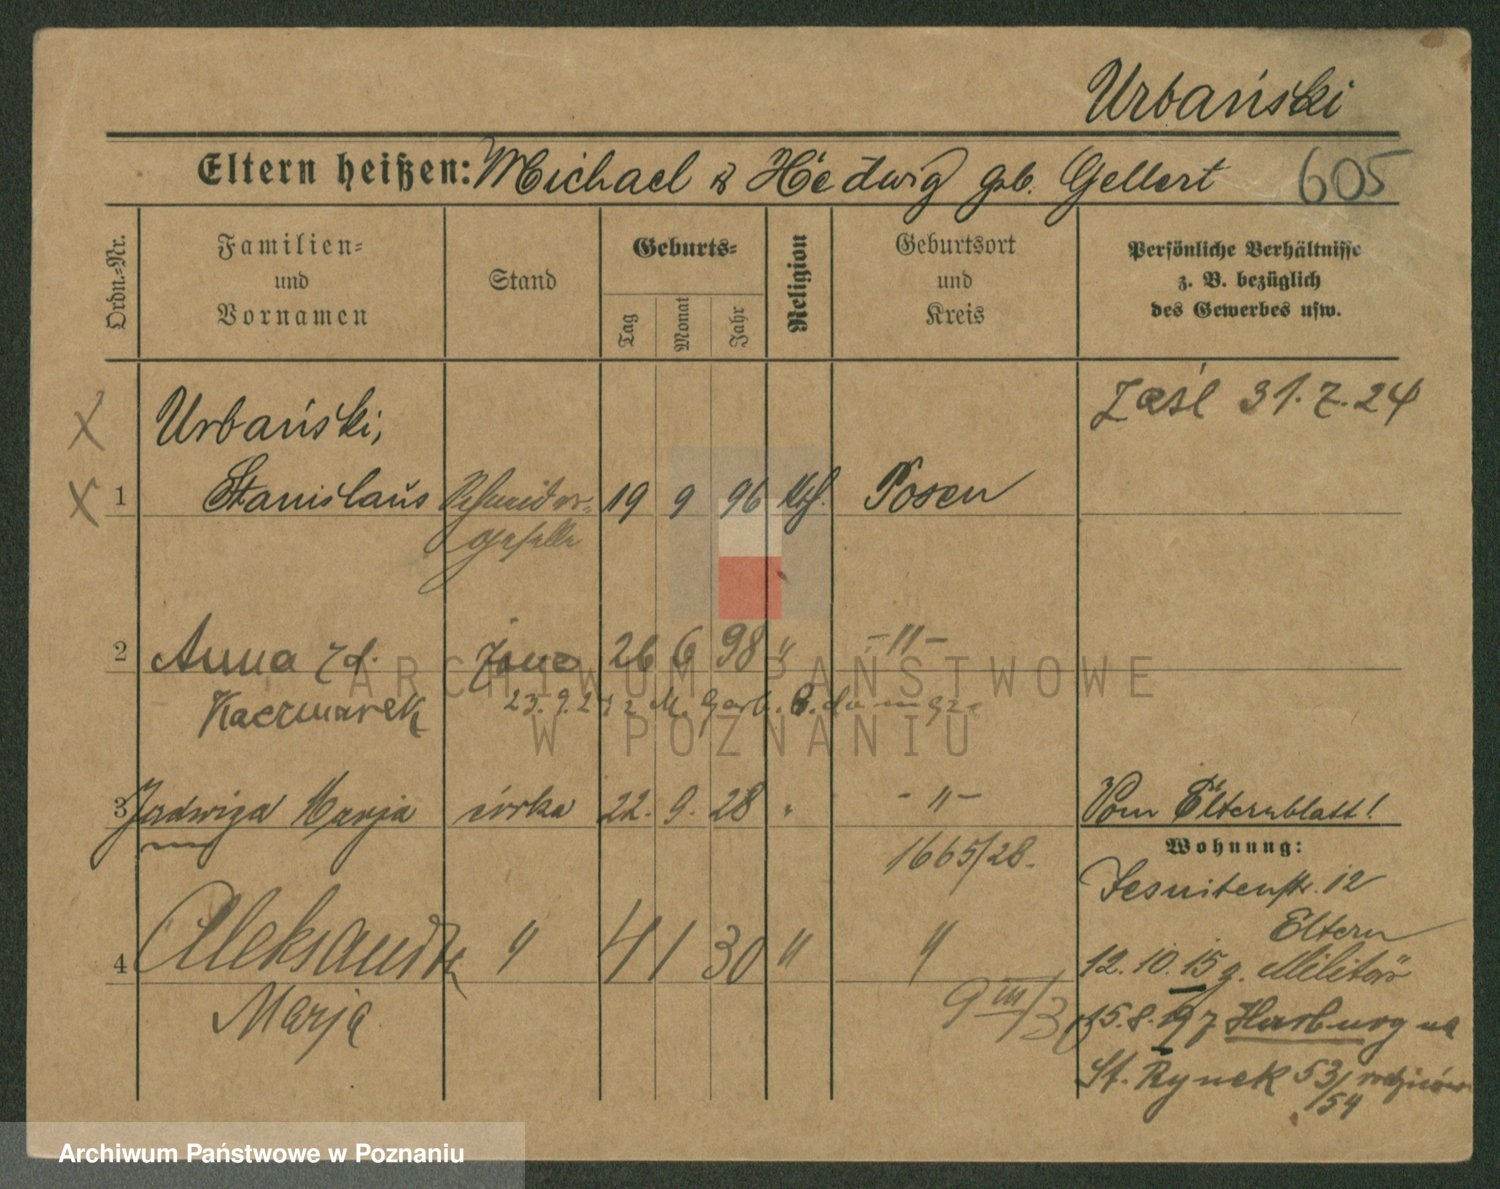 Urbański
Eltern heißen: Michael & Hedwig geb. Gellert 605
Ordn.-Nr.
Familien-
und
Vornamen
Stand
Geburts-
Tag
Monat
Jahr
Religion
Geburtsort
und
Kreis
Persönliche Verhältnisse
z. B. bezüglich
des Gewerbes usw.
Zaśl 31.7.24
X Urbański,
X 1 Stanislaus Schneider- 19 9 96 Kth. Posen
geselle
2 Anna zd. żona 26 6 98 " -"-
Kaczmarek 23.9.
3 Jadwiga Marja córka 22. 9. 28 " -"- Vom Elternblatt!
1665/28.
Wohnung:
Jesuitenstr. 12
Eltern
4 Aleksandra " 4 1 30 " " 12.10.15 z. Militär
Marja 9 III/30
15.8.19 z Harburg na
St. Rynek 53/54 rodziców
ARCHIWUM PAŃSTWOWE
W POZNANIU
Archiwum Państwowe w Poznaniu